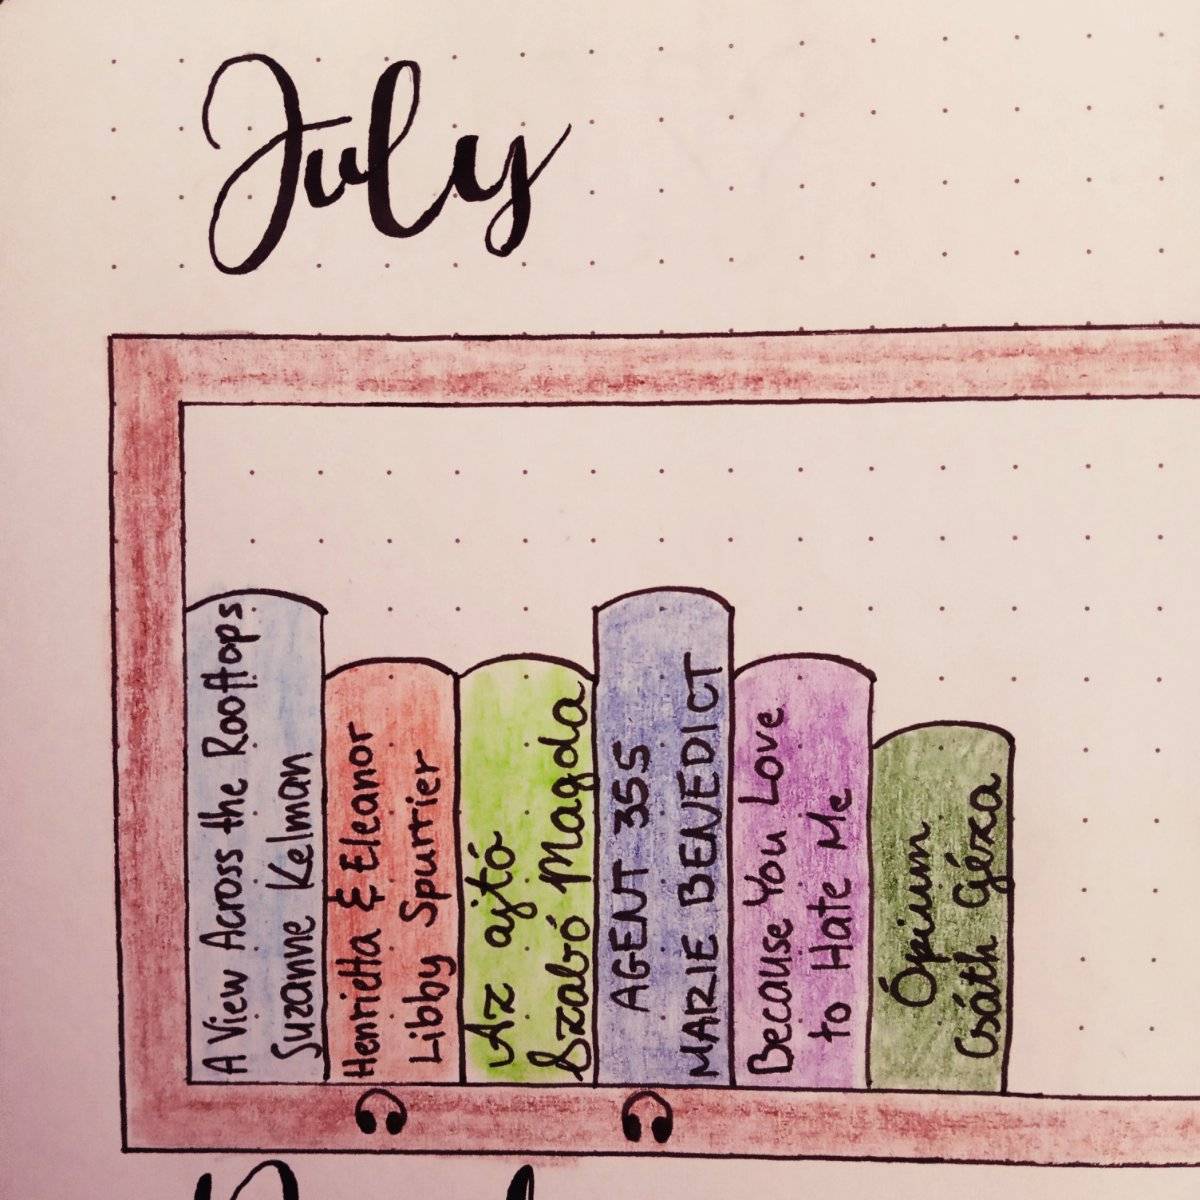 July
A View Across the Rooftops
Suzanne Kelman
Henrietta & Eleanor
Libby Spurrier
Az ajtó
Szabó Magda
AGENT 355
MARIE BENEDICT
Because You Love
to Hate Me
Ópium
Csáth Géza